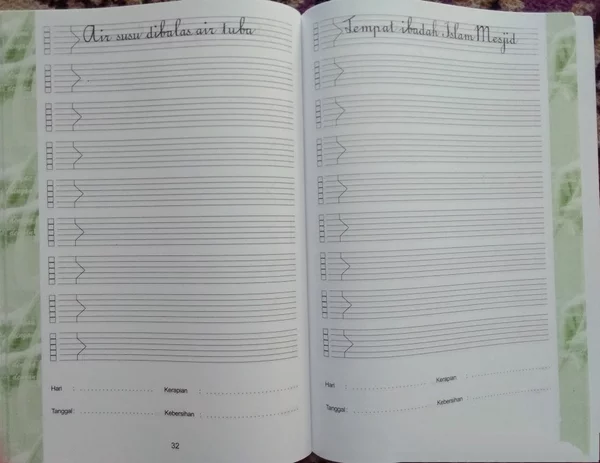 Air susu dibalas air tuba
Hari :
Kerapian :
Tanggal :
Kebersihan :
32
Tempat ibadah Islam Mesjid
Hari :
Kerapian :
Tanggal :
Kebersihan :